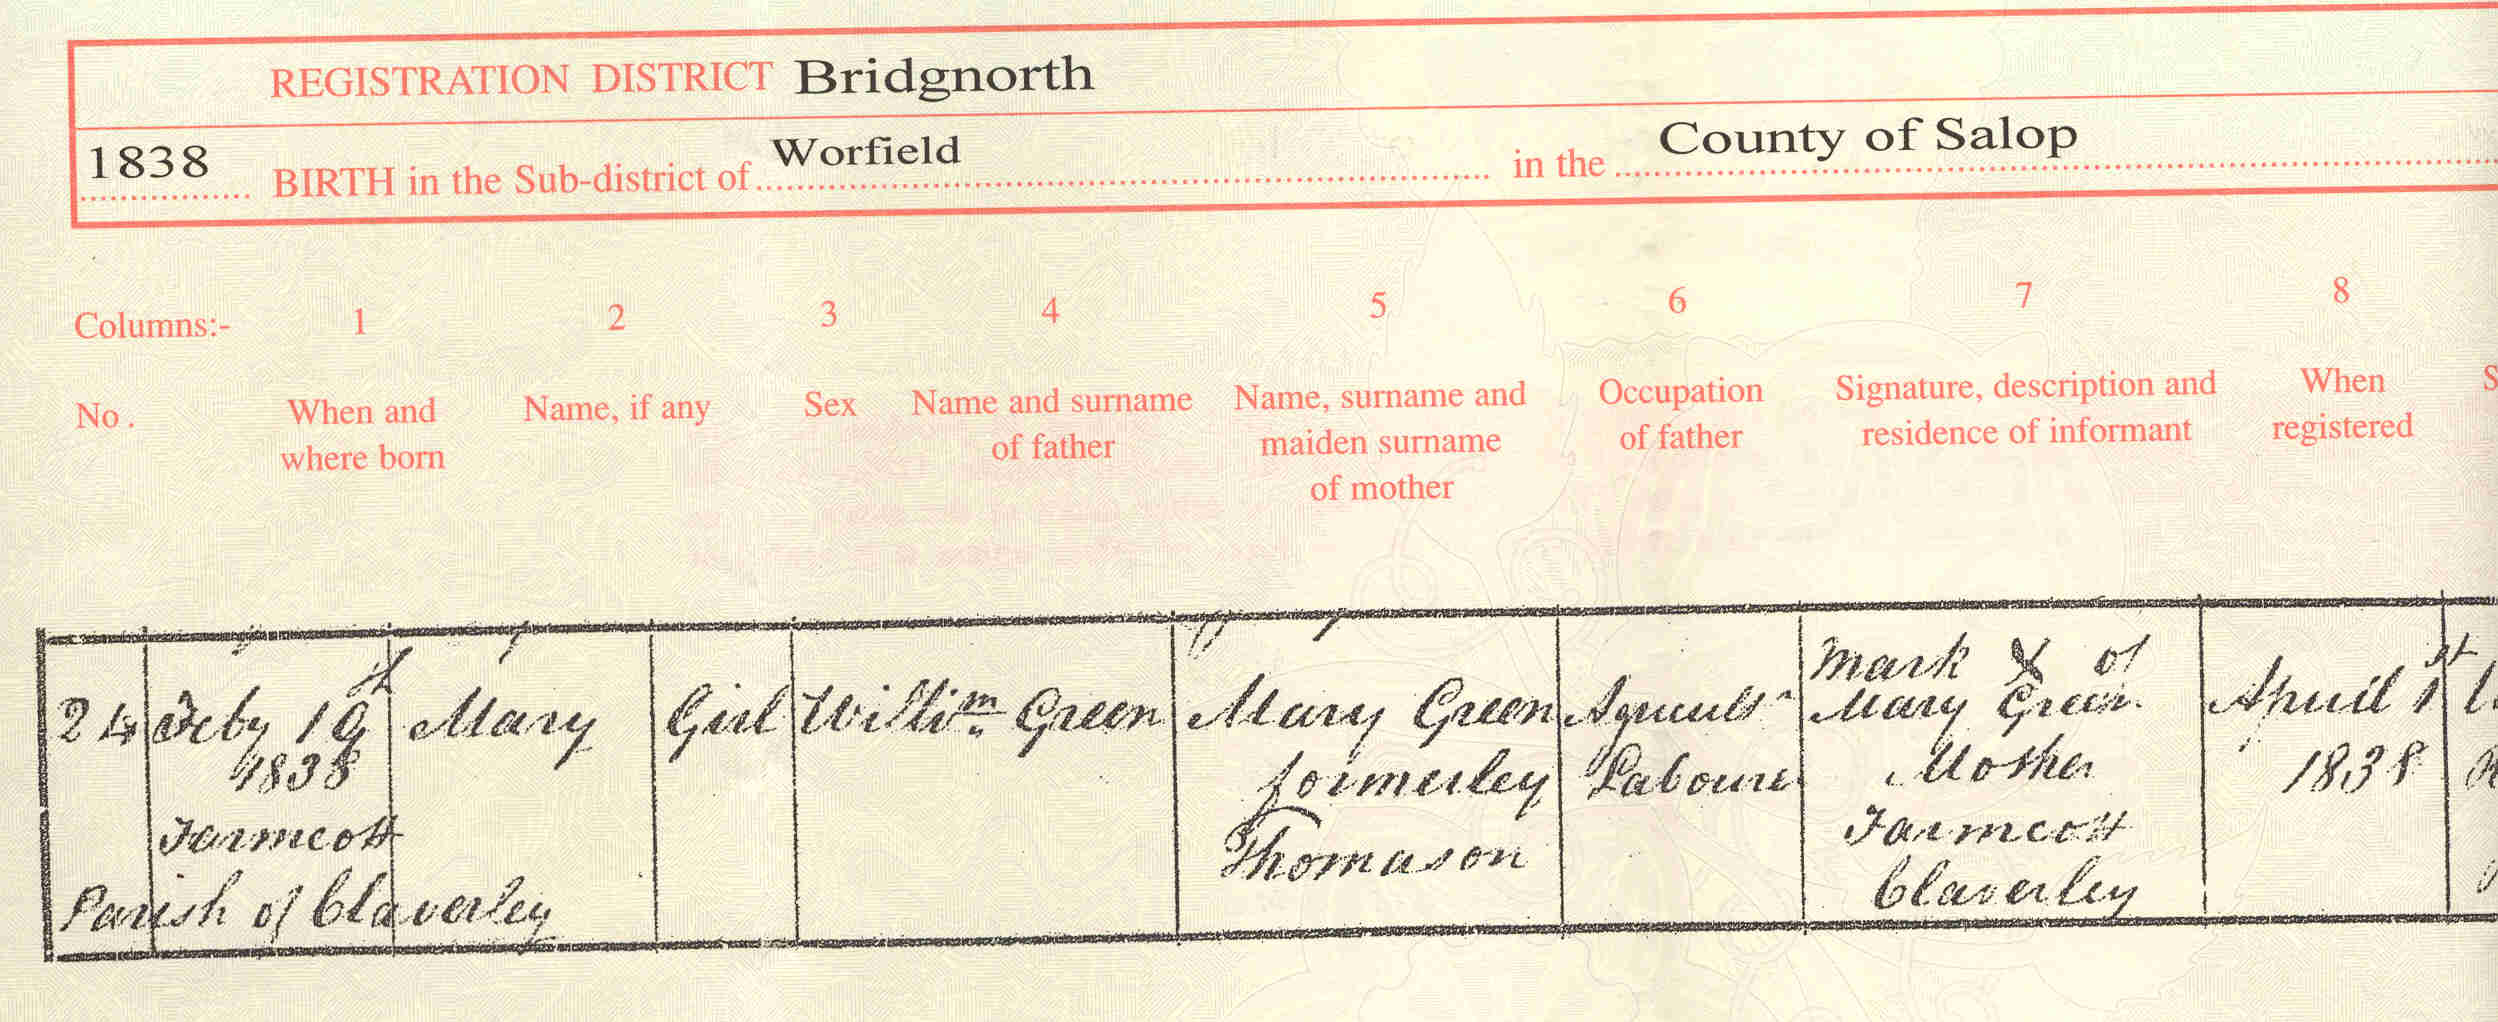 REGISTRATION DISTRICT Bridgnorth
1838 BIRTH in the Sub-district of Worfield in the County of Salop
Columns:- 1 2 3 4 5 6 7 8
No. When and where born Name, if any Sex Name and surname of father Name, surname and maiden surname of mother Occupation of father Signature, description and residence of informant When registered
24 Feby 19th 1838 Farmcott Parish of Claverley
Mary
Girl
Willim Green
Mary Green formerley Thomason
Agricult Labourer
Mark X of Mary Green Mother Farmcott Claverley
April 1st 1838